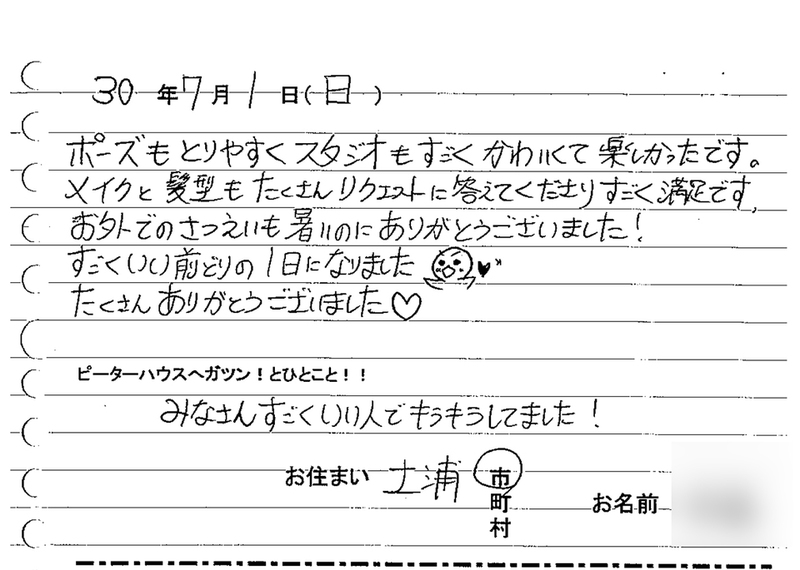 30年7月1日(日)
ポーズもとりやすくスタジオもすごくかわいくて楽しかったです。
メイクと髪型もたくさんリクエストに答えてくださりすごく満足です。
お外でのさつえいも暑いのにありがとうございました!
すごくいい前どりの1日になりました
たくさんありがとうございました♡
ピーターハウスへガツン!とひとこと!!
みなさんすごくいい人でキラキラしてました!
お住まい 土浦 市
町
村
お名前